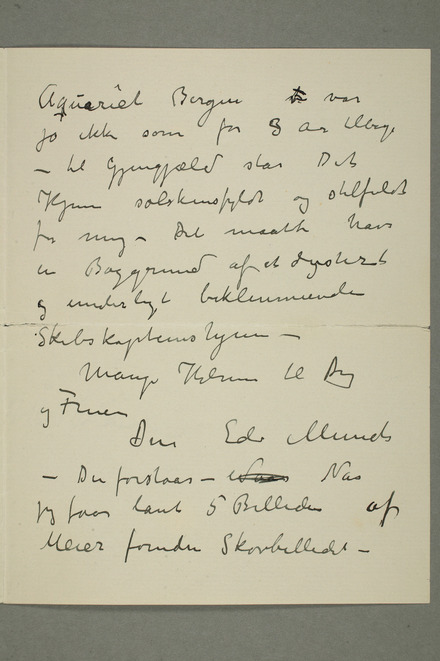 Aquariet Bergen var
jo ikke som for 3 Aar tilbage
– til Gjengjæld staar Dit
Hjem solskinsfyldt og stilfuldt
for mig – Det maatte havs
en Baggrund af et dystert
og underligt beklemmende
Skibskapteinshjem –
Mange Hilsener til Dig
og Fruen
Din Edv Munch
– Du forstaar – Naar
jeg faar laant 5 Billeder af
Meier foruden Skovbilledet –